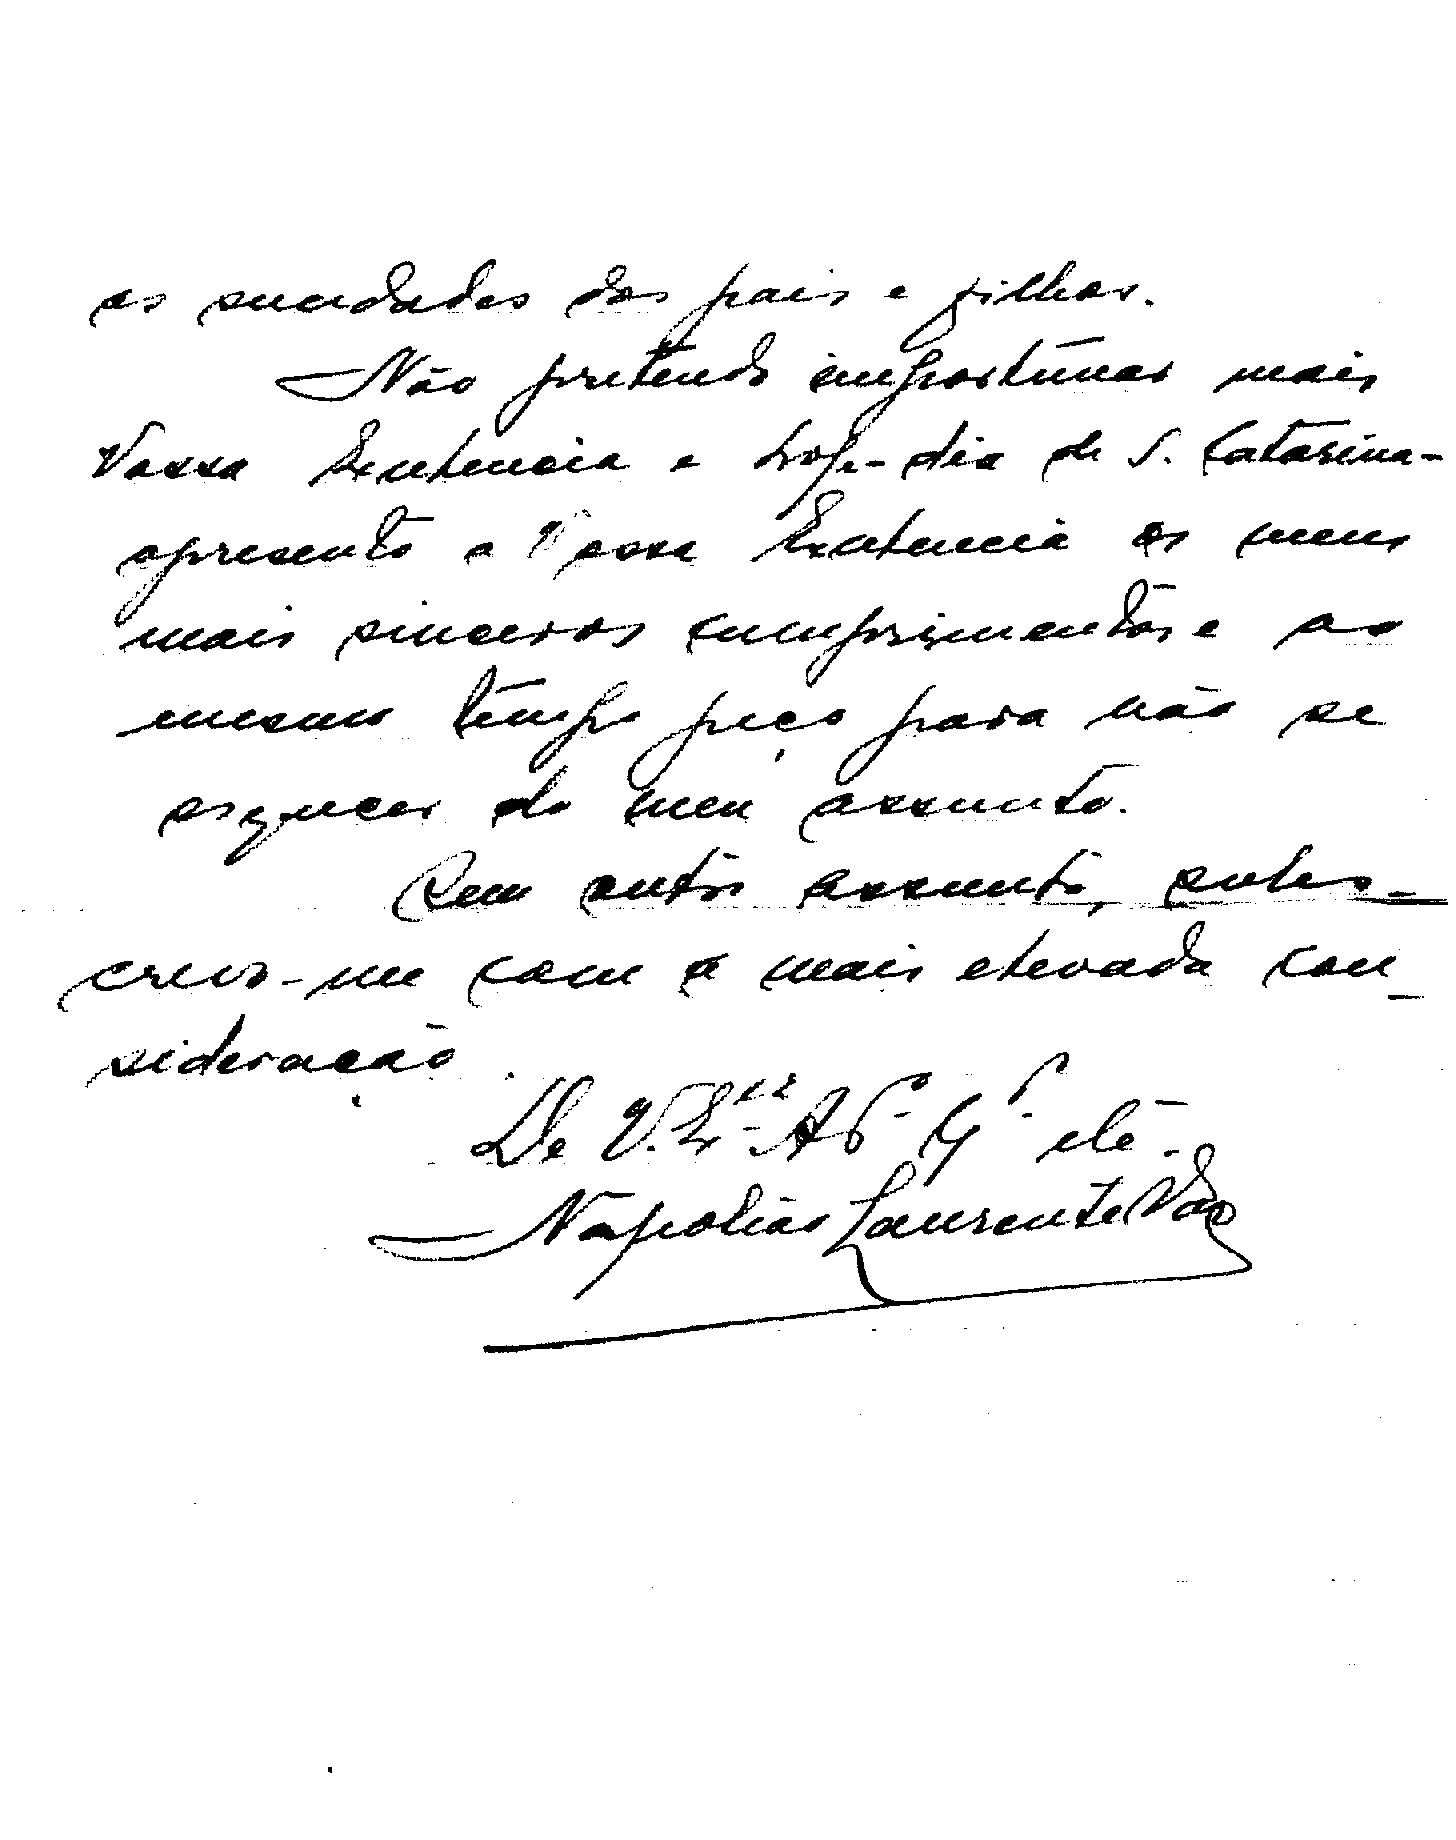 as saudades dos pais e filhos.
Não pretendo importunar mais
Vossa Excelencia e hoje - dia de S. Catarina -
apresento a Vossa Excelencia os meus
mais sinceros cumprimentos e ao
mesmo tempo peço para não se
esquecer do meu assunto.
Sem outro assunto, subs-
crevo-me com a mais elevada con-
sideração
De V. Exª Aº Gº etc.
Napolião Laurente Vás